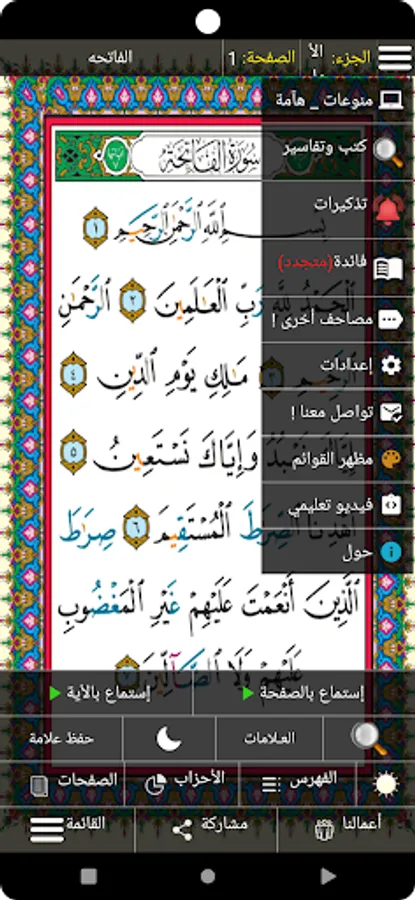 الجزء: الأ
الصفحة: 1
الفاتحه
سورة الفاتحة
منوعات _ هآمة
كتب وتفاسير
تذكيرات
فائدة(متجدد)
مصاحف أخرى !
إعدادات
تواصل معنا !
مظهر القوائم
فيديو تعليمي
حول
بِسْمِ ٱللَّهِ ٱلرَّحْمَٰنِ ٱلرَّحِيمِ ١
ٱلْحَمْدُ لِلَّهِ رَبِّ ٱلْعَٰلَمِينَ ٢ ٱلرَّحْمَٰنِ
ٱلرَّحِيمِ ٣ مَٰلِكِ يَوْمِ ٱلدِّينِ ٤
إِيَّاكَ نَعْبُدُ وَإِيَّاكَ نَسْتَعِينُ ٥
ٱهْدِنَا ٱلصِّرَٰطَ ٱلْمُسْتَقِيمَ ٦ صِرَٰطَ
ٱلَّذِينَ أَنْعَمْتَ عَلَيْهِمْ غَيْرِ ٱلْمَغْضُوبِ
عَلَيْهِمْ وَلَا ٱلضَّآلِّينَ ٧
إستماع بالصفحة
إستماع بالأية
العلامات
حفظ علامة
الفهرس
الأحزاب
الصفحات
أعمالنا
مشاركة
القائمة